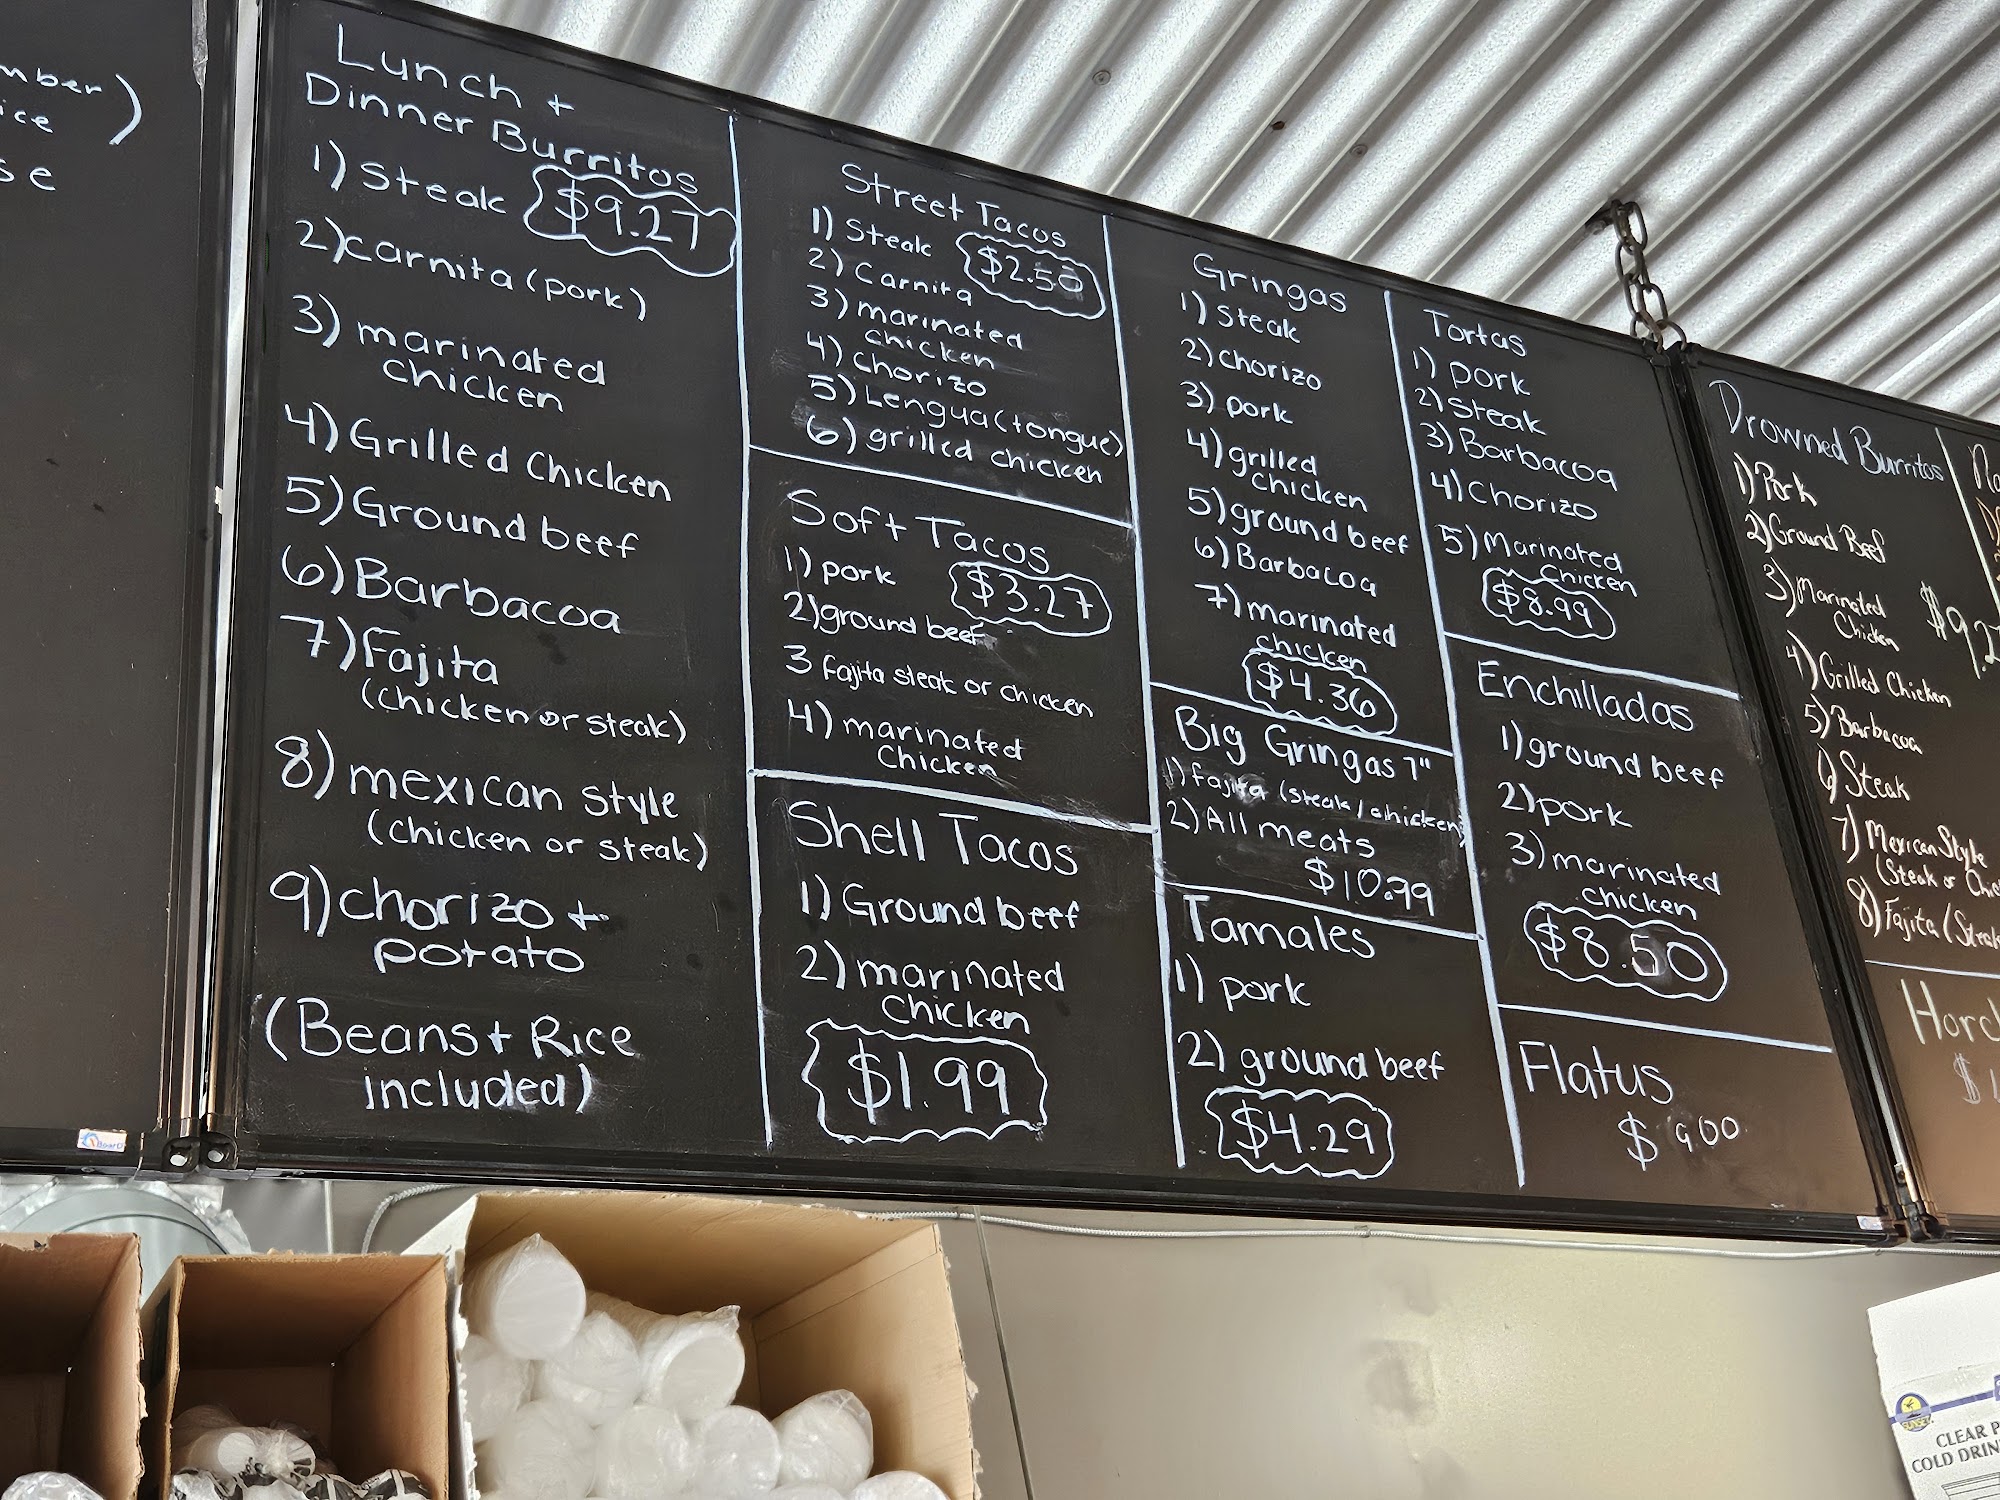 Lunch +
Dinner Burritos
1) Steak $9.27
2) carnita (pork)
3) marinated
chicken
4) Grilled Chicken
5) Ground beef
6) Barbacoa
7) Fajita
(chicken or steak)
8) mexican style
(chicken or steak)
9) chorizo +
potato
(Beans + Rice
included)
Street Tacos
1) Steak $2.50
2) Carnita
3) marinated
chicken
4) Chorizo
5) Lengua (tongue)
6) grilled chicken
Soft Tacos
1) pork $3.27
2) ground beef
3 fajita steak or chicken
4) marinated
Chicken
Shell Tacos
1) Ground beef
2) marinated
chicken
$1.99
Gringas
1) Steak
2) chorizo
3) pork
4) grilled
chicken
5) ground beef
6) Barbacoa
7) marinated
chicken
$4.36
Big Gringas 7"
1) fajita (steak / chicken)
2) All meats
$10.99
Tamales
1) pork
2) ground beef
$4.29
Tortas
1) pork
2) Steak
3) Barbacoa
4) Chorizo
5) Marinated
Chicken
$8.99
Enchilladas
1) ground beef
2) pork
3) marinated
chicken
$8.50
Flatus
$9.00
Drowned Burritos
1) Pork
2) Ground Beef
3) Marinated
Chicken
4) Grilled Chicken
5) Barbacoa
6) Steak
7) Mexican Style
(Steak or
8) Fajita
CLEAR
COLD